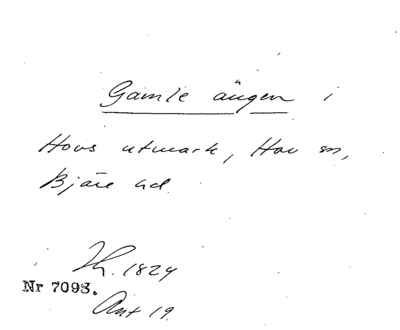 Gamle ängen i
Hovs utmark, Hov sn,
Bjäre hd.
Th. 1824
Nr 7098.
Ant 19